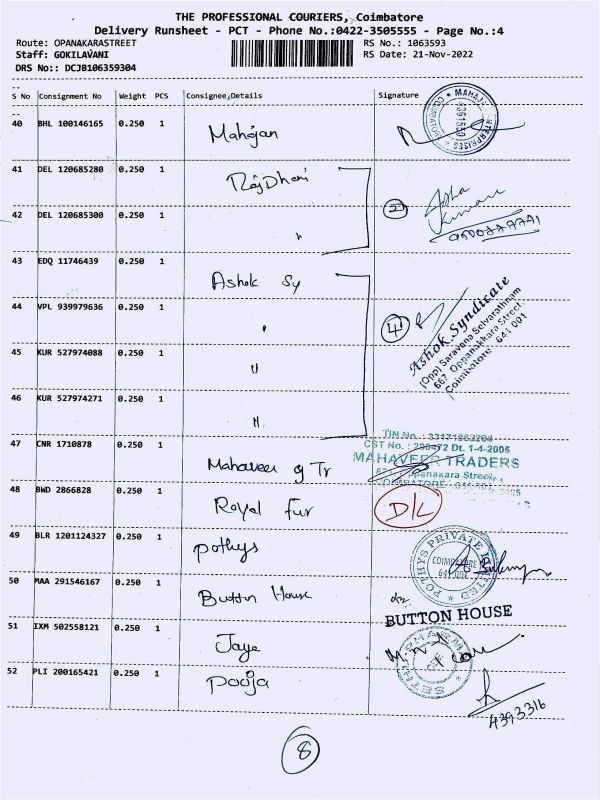 THE PROFESSIONAL COURIERS, Coimbatore
Delivery Runsheet - PCT - Phone No.:0422-3505555 - Page No.:4
Route: OPANAKARASTREET RS No.: 1063593
Staff: GOKILAVANI RS Date: 21-Nov-2022
DRS No:: DCJB106359304
S No Consignment No Weight PCS Consignee,Details Signature
40 BHL 100146165 0.250 1 Mahajan
41 DEL 120685280 0.250 1 RajDhani
42 DEL 120685300 0.250 1 "
2 Asha Kumari
43 EDQ 11746439 0.250 1 Ashok Sy
44 VPL 939979636 0.250 1 "
45 KUR 527974088 0.250 1 "
46 KUR 527974271 0.250 1 "
4 Ashok Syndicate
(Opp) Saravana Selvarathnam
667, Oppanakkara Street,
Coimbatore - 641 001
47 CNR 1710878 0.250 1 Mahaveer g Tr
CST No. Dt. 1-4-2006
MAHAVEER TRADERS
Oppanakara Street,
48 BWD 2866828 0.250 1 Royal Fur D/L
49 BLR 1201124327 0.250 1 Pothys
POTHYS PRIVATE LIMITED
COIMBATORE
50 MAA 291546167 0.250 1 Button House
BUTTON HOUSE
51 IXM 502558121 0.250 1 Jaya
52 PLI 200165421 0.250 1 Pooja
4393316
8